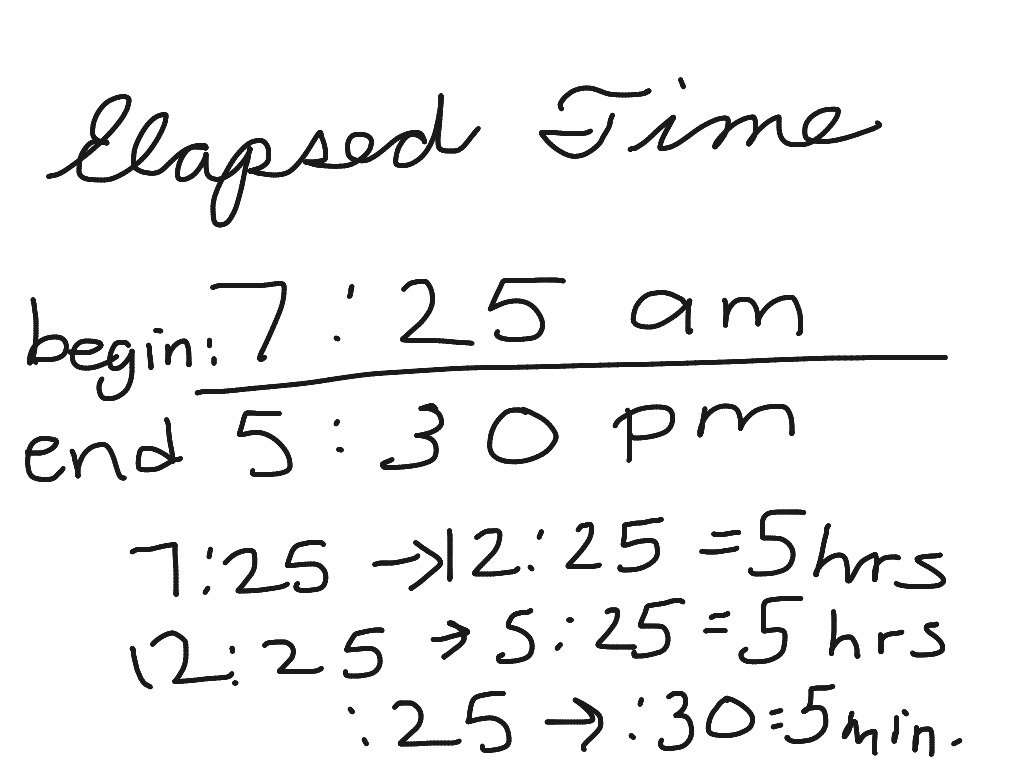 Elapsed Time
begin: 7:25 am
end 5:30 pm
7:25 → 12:25 = 5 hrs
12:25 → 5:25 = 5 hrs
:25 → :30 = 5 min.